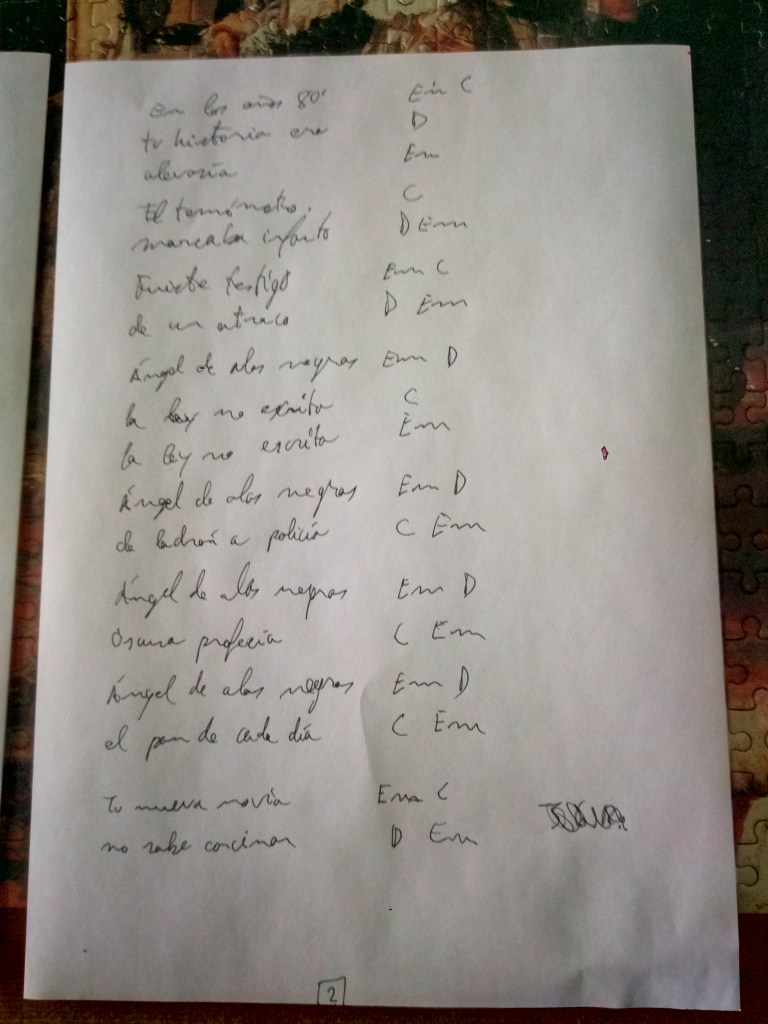 En los años 80' Em C
tu historia era D
alevosía Em
El termómetro. C
marcaba infarto D Em
Fuiste testigo Em C
de un atraco D Em
Ángel de alas negras Em D
la ley no escrita C
la ley no escrita Em
Ángel de alas negras Em D
de ladrón a policía C Em
Ángel de alas negras Em D
Oscura profecía C Em
Ángel de alas negras Em D
el pan de cada día C Em
Tu nueva novia Em C
no sabe cocinar D Em
2